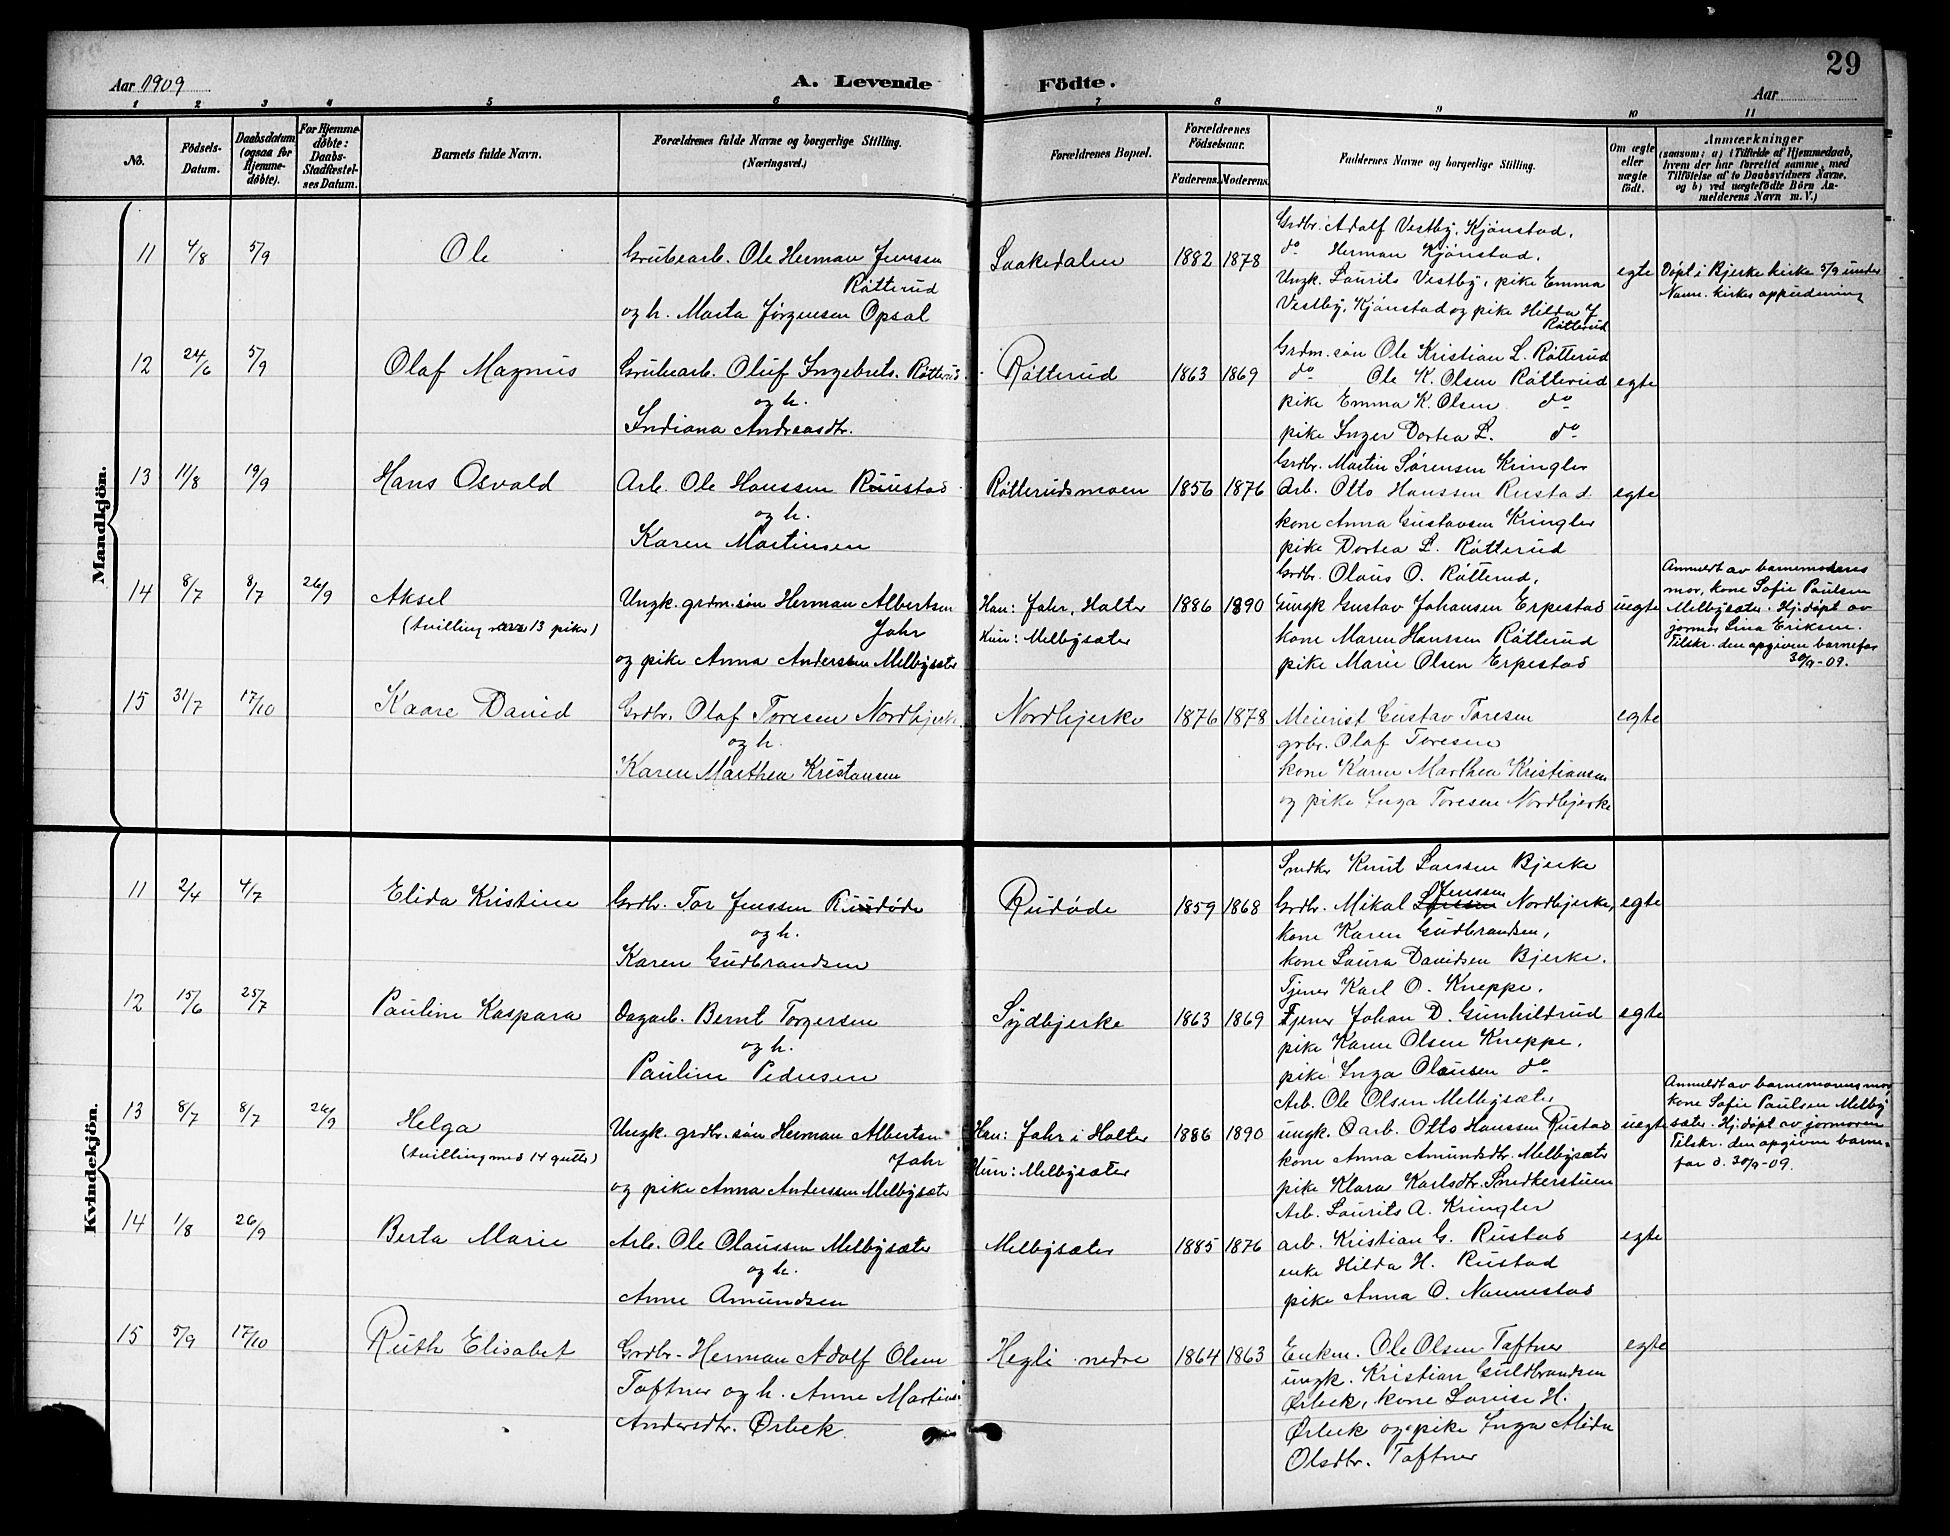 29
Aar 1909
A. Levende Födte.
Aar
1 2 3 4 5 6 7 8 9 10 11
No.
Födsels-Datum.
Daabsdatum (ogsaa for Hjemme-døbte).
For Hjemme-døbte: Daabs-Stadfæstel-ses Datum.
Barnets fulde Navn.
Forældrenes fulde Navne og borgerlige Stilling. (Næringsvei.)
Forældrenes Bopæl.
Forældrenes Födselsaar.
Faderens. Moderens.
Faddernes Navne og borgerlige Stilling.
Om ægte eller uægte født.
Anmærkninger
(saasom: a) i Tilfælde af Hjemmedaab,
hvem der har forrettet samme, med
Tilföielse af to Daabsvidners Navne.
og b) ved uægtefödte Börn An-
melderens Navn m. V.)
Mandkjön.
11 4/8 5/9 Ole
Grubearb. Ole Herman Jenssen
Røtterud
og h. Marta Jørgensen Opsal
Laakedalen 1882 1878
Grdbr. Adolf Vestby, Kjønstad,
do Herman Kjønstad,
Ungk. Laurits Vestby, pike Emma
Vestby, Kjønstad og pike Hilda J.
Røtterud
egte
Døpt i Bjerke kirke 5/9 under
Nann. kirkes oppudsning
12 24/6 5/9 Olaf Magnus
Grubearb. Oluf Ingebrets. Røtterud
og h.
Indiana Andreasdtr.
Røtterud 1863 1869
Grdm. søn Ole Kristian L. Røtterud
do Ole K. Olsen Røtterud
pike Emma K. Olsen do
pike Inger Dortea L. do
egte
13 11/8 19/9 Hans Osvald
Arb. Ole Hanssen Ruustad
og h.
Karen Martinsen
Røtterudsmoen 1856 1876
Grdbr. Martin Sørensen Kringler
Arb. Otto Hanssen Rustad
kone Anna Gustavsen Kringler
pike Dortea L. Røtterud
egte
14 8/7 8/7 26/9 Aksel
(tvilling 13 pike)
Ungk. grdm. søn Herman Albertsen
Jahr
og pike Anna Anderssen Melbysæter
Han: Jahr, Holter
Hun: Melbysæter
1886 1890
Grdbr. Olaus O. Røtterud,
ungk Gustav Johansen Erpestad
kone Maren Hanssen Røtterud
pike Marie Olsen Erpestad
uegte
Anmeldt av barnemoderes
mor, kone Sofie Paulsen
Melbysæter. Hj. døpt av
jormor Lina Eriksen.
Tilskr. den opgiven barnefar
30/9-09.
15 31/7 17/10 Kaare David
Grdbr. Olaf Toresen Nordbjerke
og h.
Karen Marthea Kristansen
Nordbjerke 1876 1878
Meierist Gustav Toresen
grbr. Olaf Toresen
kone Karen Marthea Kristiansen
og pike Inga Toresen Nordbjerke
egte
Kvindekjön.
11 2/4 4/7 Elida Kristine
Grdbr. Tor Jenssen Ruudøde
og h.
Karen Gudbrandsen
Rudøde 1859 1868
Snedker Knut Larssen Bjerke
Grdbr. Mikal Jenssen Nordbjerke,
kone Karen Gudbrandsen,
kone Laura Davidsen Bjerke.
egte
12 15/6 25/7 Pauline Kaspara
Dagarb. Bernt Torgersen
og h.
Pauline Pedersen
Sydbjerke 1863 1869
Tjener Karl O. Kneppe,
Tjener Johan D. Gunhildrud
pike Karen Olsen Kneppe,
pike Inga Olausen do
egte
13 8/7 8/7 26/9 Helga
(tvilling med 14 gutter)
Ungk. grdbr. søn Herman Albertsen
Jahr
og pike Anna Anderssen Melbysæter
Han: Jahr i Holter
Hun: Melbysæter
1886 1890
Arb. Ole Olsen Melbysæter
ungk. arb. Otto Hanssen Rustad
kone Anna Amundsdtr. Melbysæter
pike Klara Karlsdtr. Snedkerstuen
uegte
Anmeldt av barnemorens mor
kone Sofie Paulsen Melby
sæter. Hj. døpt av jormoren
Tilskr. den opgiven barne-
far d. 30/9-09.
14 1/8 26/9 Berta Marie
Arb. Ole Olaussen Melbysæter
og h.
Anne Amundsen
Melbysæter 1885 1876
Arb. Laurits A. Kringler
arb. Kristian G. Rustad
enke Hilda H. Rustad
pike Anna O. Nannestad
egte
15 5/9 17/10 Ruth Elisabet
Grdbr. Herman Adolf Olsen
Taftner og h. Anne Martins
Andersdtr. Ørbek
Hegli nedre 1864 1863
Enkem. Ole Olsen Taftner
ungk. Kristian Guldbrandsen
Ørbek, kone Lovise H.
Ørbek og pike Inga Alida
Olsdtr. Taftner
egte